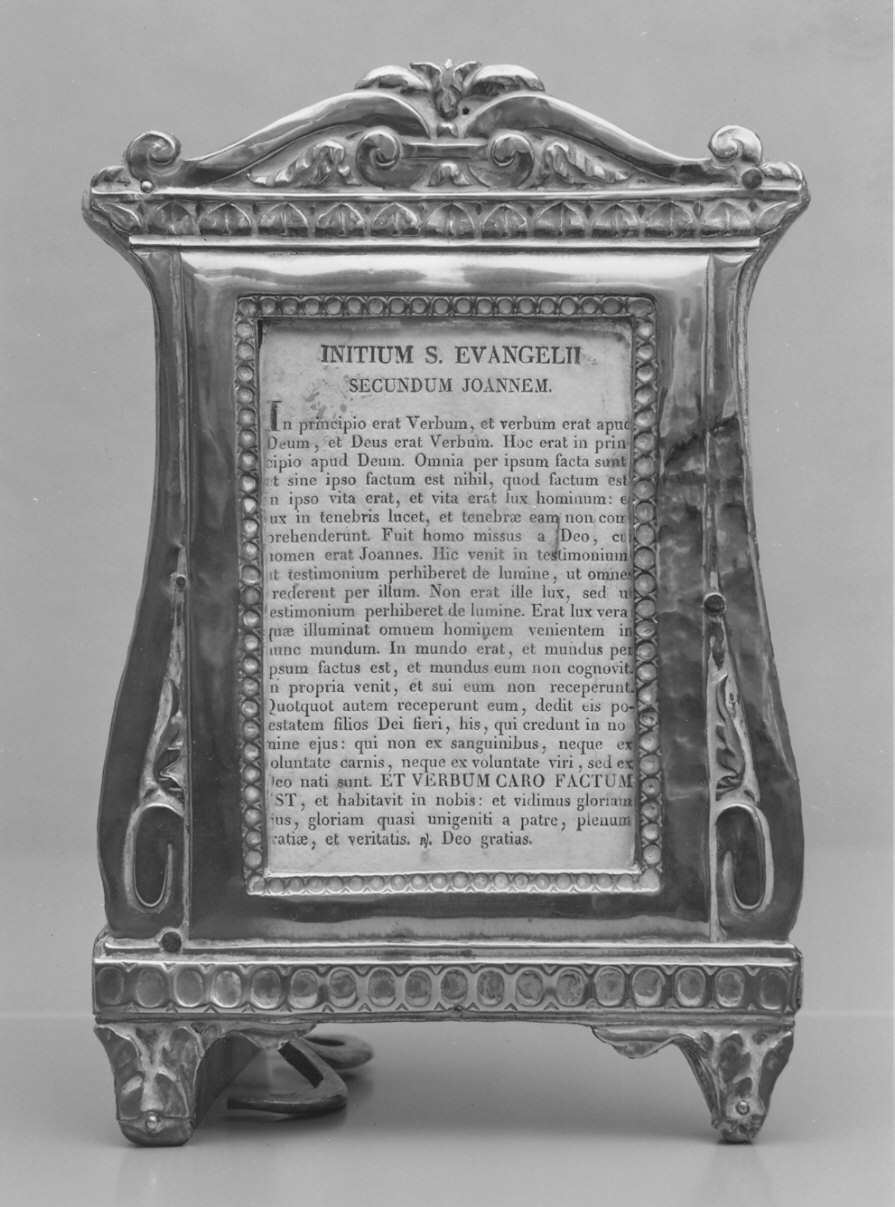 INITIUM S. EVANGELII
SECUNDUM JOANNEM.
In principio erat Verbum, et verbum erat apud
Deum, et Deus erat Verbum. Hoc erat in prin
cipio apud Deum. Omnia per ipsum facta sunt
et sine ipso factum est nihil, quod factum est
n ipso vita erat, et vita erat lux hominum: e
ux in tenebris lucet, et tenebræ eam non com
prehenderunt. Fuit homo missus a Deo, cu
nomen erat Joannes. Hic venit in testimonium
ut testimonium perhiberet de lumine, ut omnes
rederent per illum. Non erat ille lux, sed u
estimonium perhiberet de lumine. Erat lux vera
quæ illuminat omnem hominem venientem in
hunc mundum. In mundo erat, et mundus per
psum factus est, et mundus eum non cognovit.
n propria venit, et sui eum non receperunt.
Quotquot autem receperunt eum, dedit eis po-
estatem filios Dei fieri, his, qui credunt in no
mine ejus: qui non ex sanguinibus, neque ex
oluntate carnis, neque ex voluntate viri, sed ex
Deo nati sunt. ET VERBUM CARO FACTUM
EST, et habitavit in nobis: et vidimus gloriam
jus, gloriam quasi unigeniti a patre, plenum
ratiæ, et veritatis. ℟. Deo gratias.